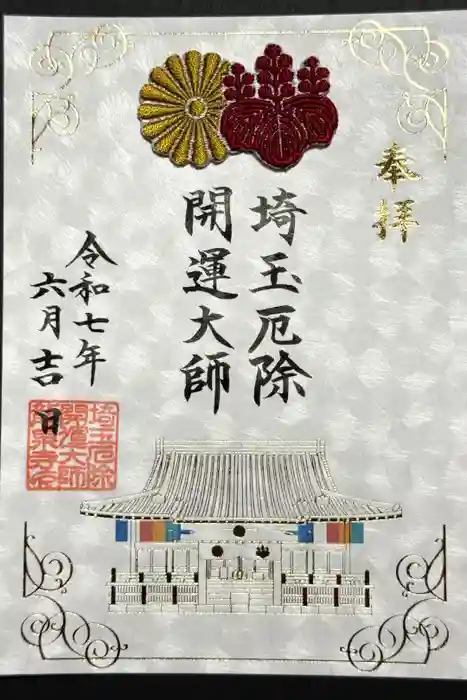 奉拝
埼玉厄除
開運大師
令和七年
六月吉日
埼玉厄除
開運大師